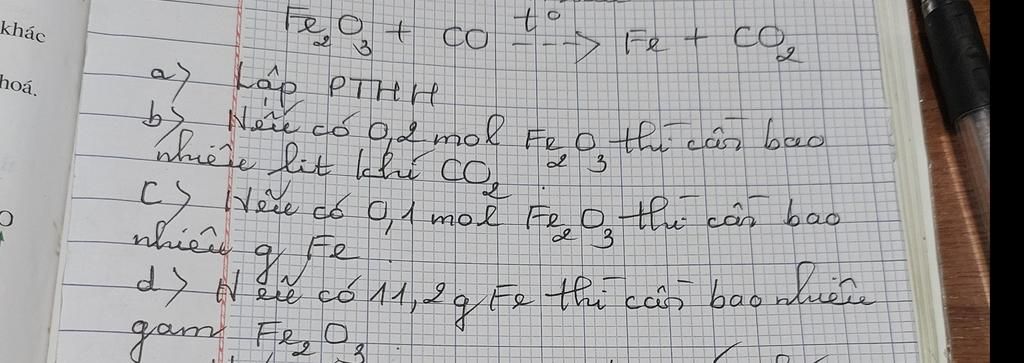 khác
hoá.
Fe2O3 + CO --t°--> Fe + CO2
a> Lập PTHH
b> Nếu có 0,2 mol Fe2O3 thì cần bao
nhiêu lit khí CO2.
c> Nếu có 0,1 mol Fe2O3 thì cần bao
nhiêu g Fe.
d> Nếu có 11,2g Fe thì cần bao nhiêu
gam Fe2O3.